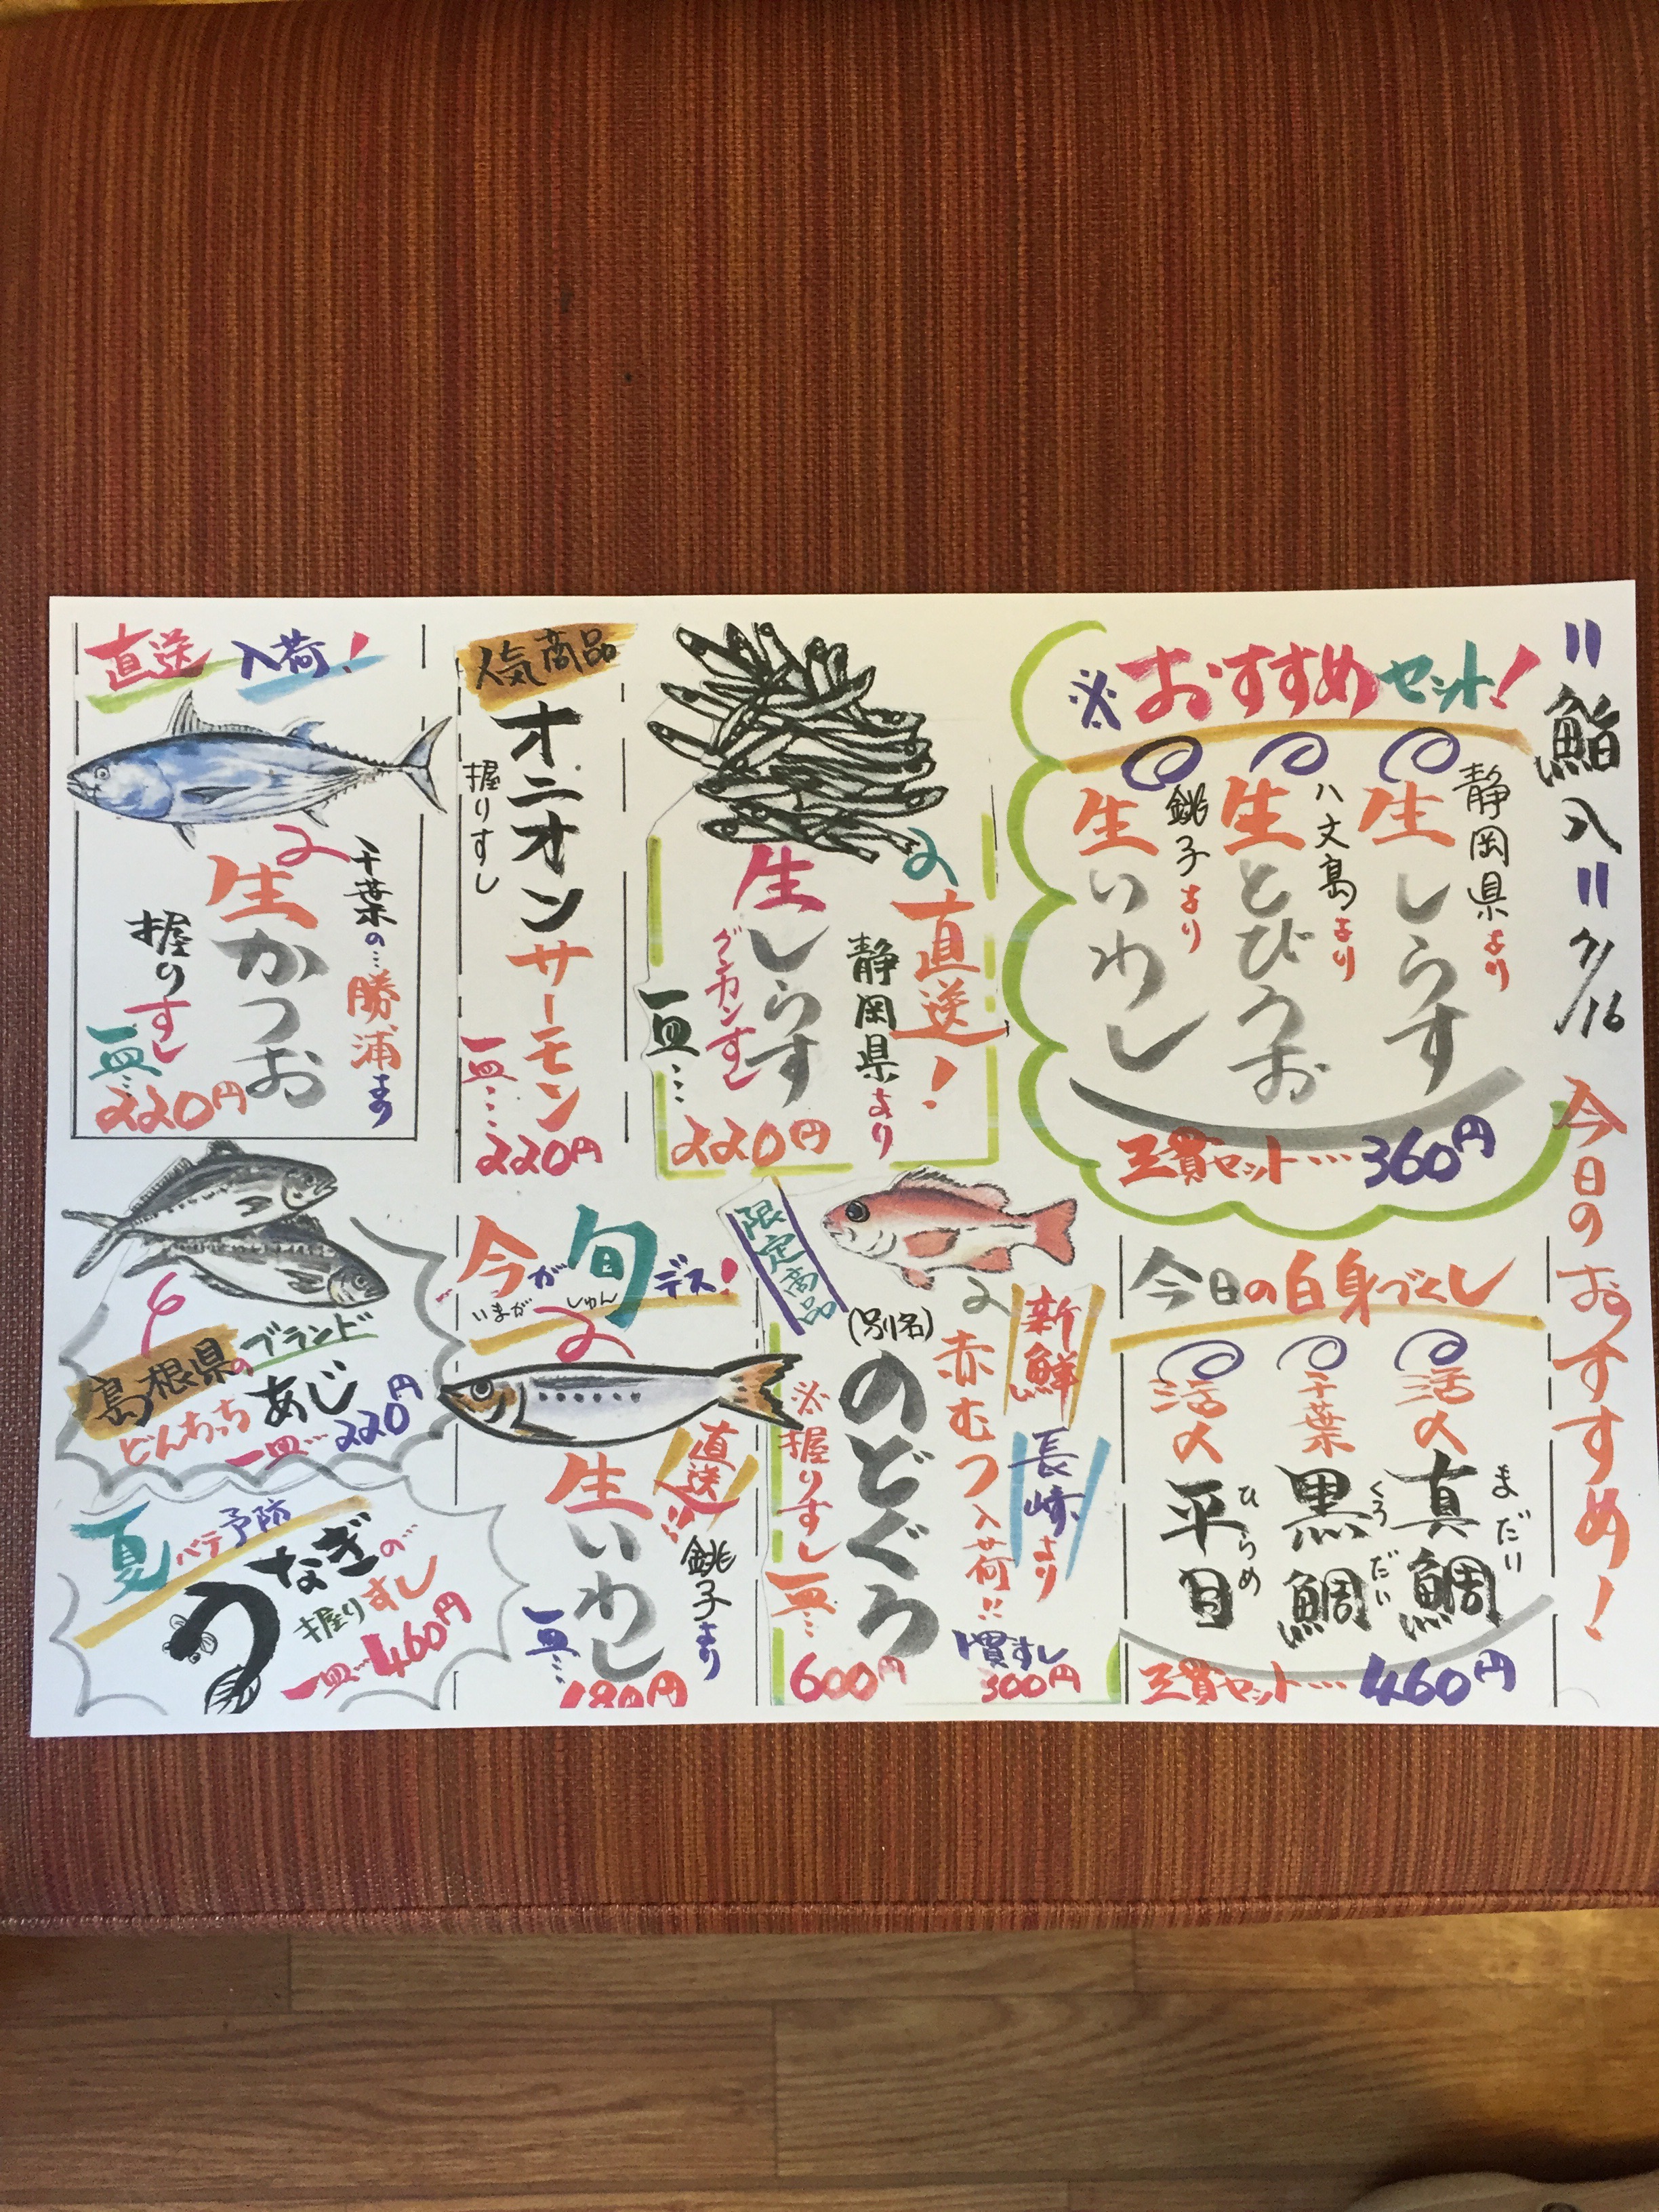 "鮨入" 7/16
今日のおすすめ！
※おすすめセット！
静岡県より
生しらす
八丈島より
生とびうお
銚子より
生いわし
三貫セット…360円
直送！
静岡県より
生しらす
グンカンすし
一皿…
220円
人気商品
オニオンサーモン
握りすし
一皿…
220円
直送入荷！
千葉の…勝浦より
生かつお
握りすし
一皿…
220円
今日の白身づくし
活〆
真鯛
まだい
千葉
黒鯛
くろだい
活〆
平目
ひらめ
三貫セット…460円
限定商品
新鮮
長崎より
赤むつ入荷!!
(別名)
のどぐろ
※握りすし
一皿…
600円
1貫すし
300円
今が旬デス！
いまが しゅん
直送!!
銚子より
生いわし
一皿…
180円
島根県のブランド
どんちっちあじ
一皿…220円
夏バテ予防
うなぎの
握りすし
一皿…460円